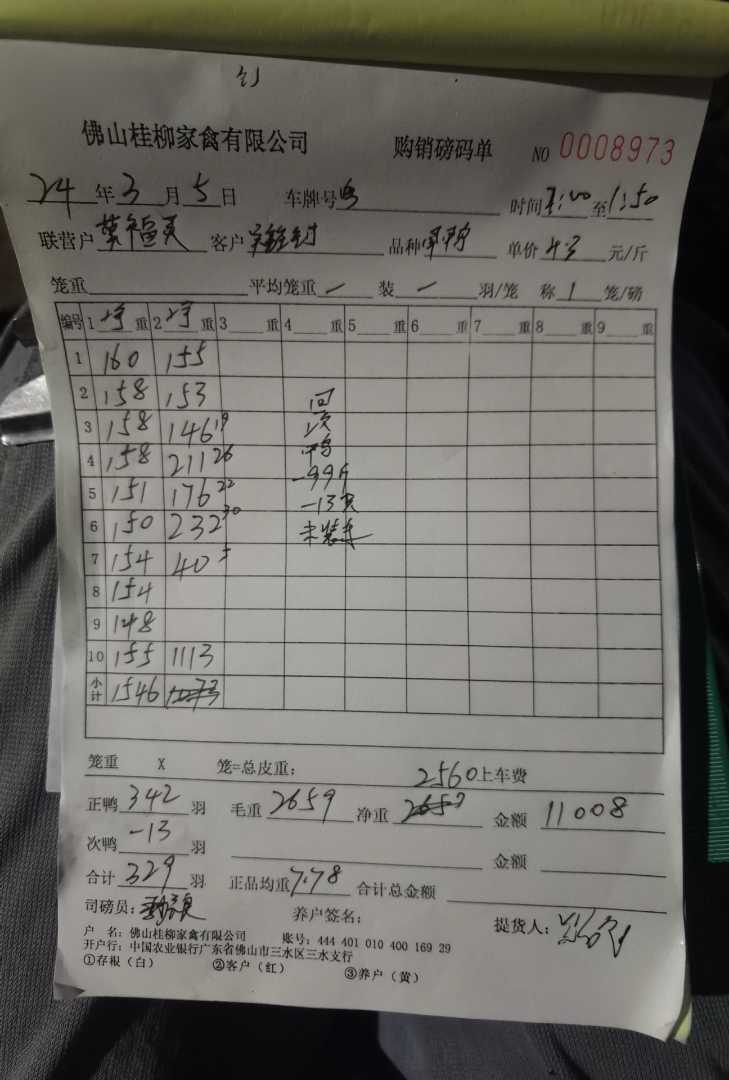 佛山桂柳家禽有限公司 购销磅码单 NO 0008973
24 年 3 月 5 日 车牌号 时间 1:00 至 1:50
联营户 客户 品种 单价 4.3 元/斤
笼重 平均笼重 一 装 一 羽/笼 称 1 笼/磅
编号 1 重 2 重 3 重 4 重 5 重 6 重 7 重 8 重 9 重
1 160 155
2 158 153 回
3 158 146 19
4 158 211 26 鸭
5 151 176 22 -99斤
6 150 232 30 -13只
7 154 40 5 未装车
8 154
9 148
10 155 1113
小计 1546 1073
笼重 X 笼=总皮重: 2560 上车费
正鸭 342 羽 毛重 2659 净重 金额 11008
次鸭 -13 羽 金额
合计 329 羽 正品均重 7.78 合计总金额
司磅员: 养户签名: 提货人:
户 名: 佛山桂柳家禽有限公司 账号: 444 401 010 400 169 29
开户行: 中国农业银行广东省佛山市三水区三水支行
①存根（白） ②客户（红） ③养户（黄）